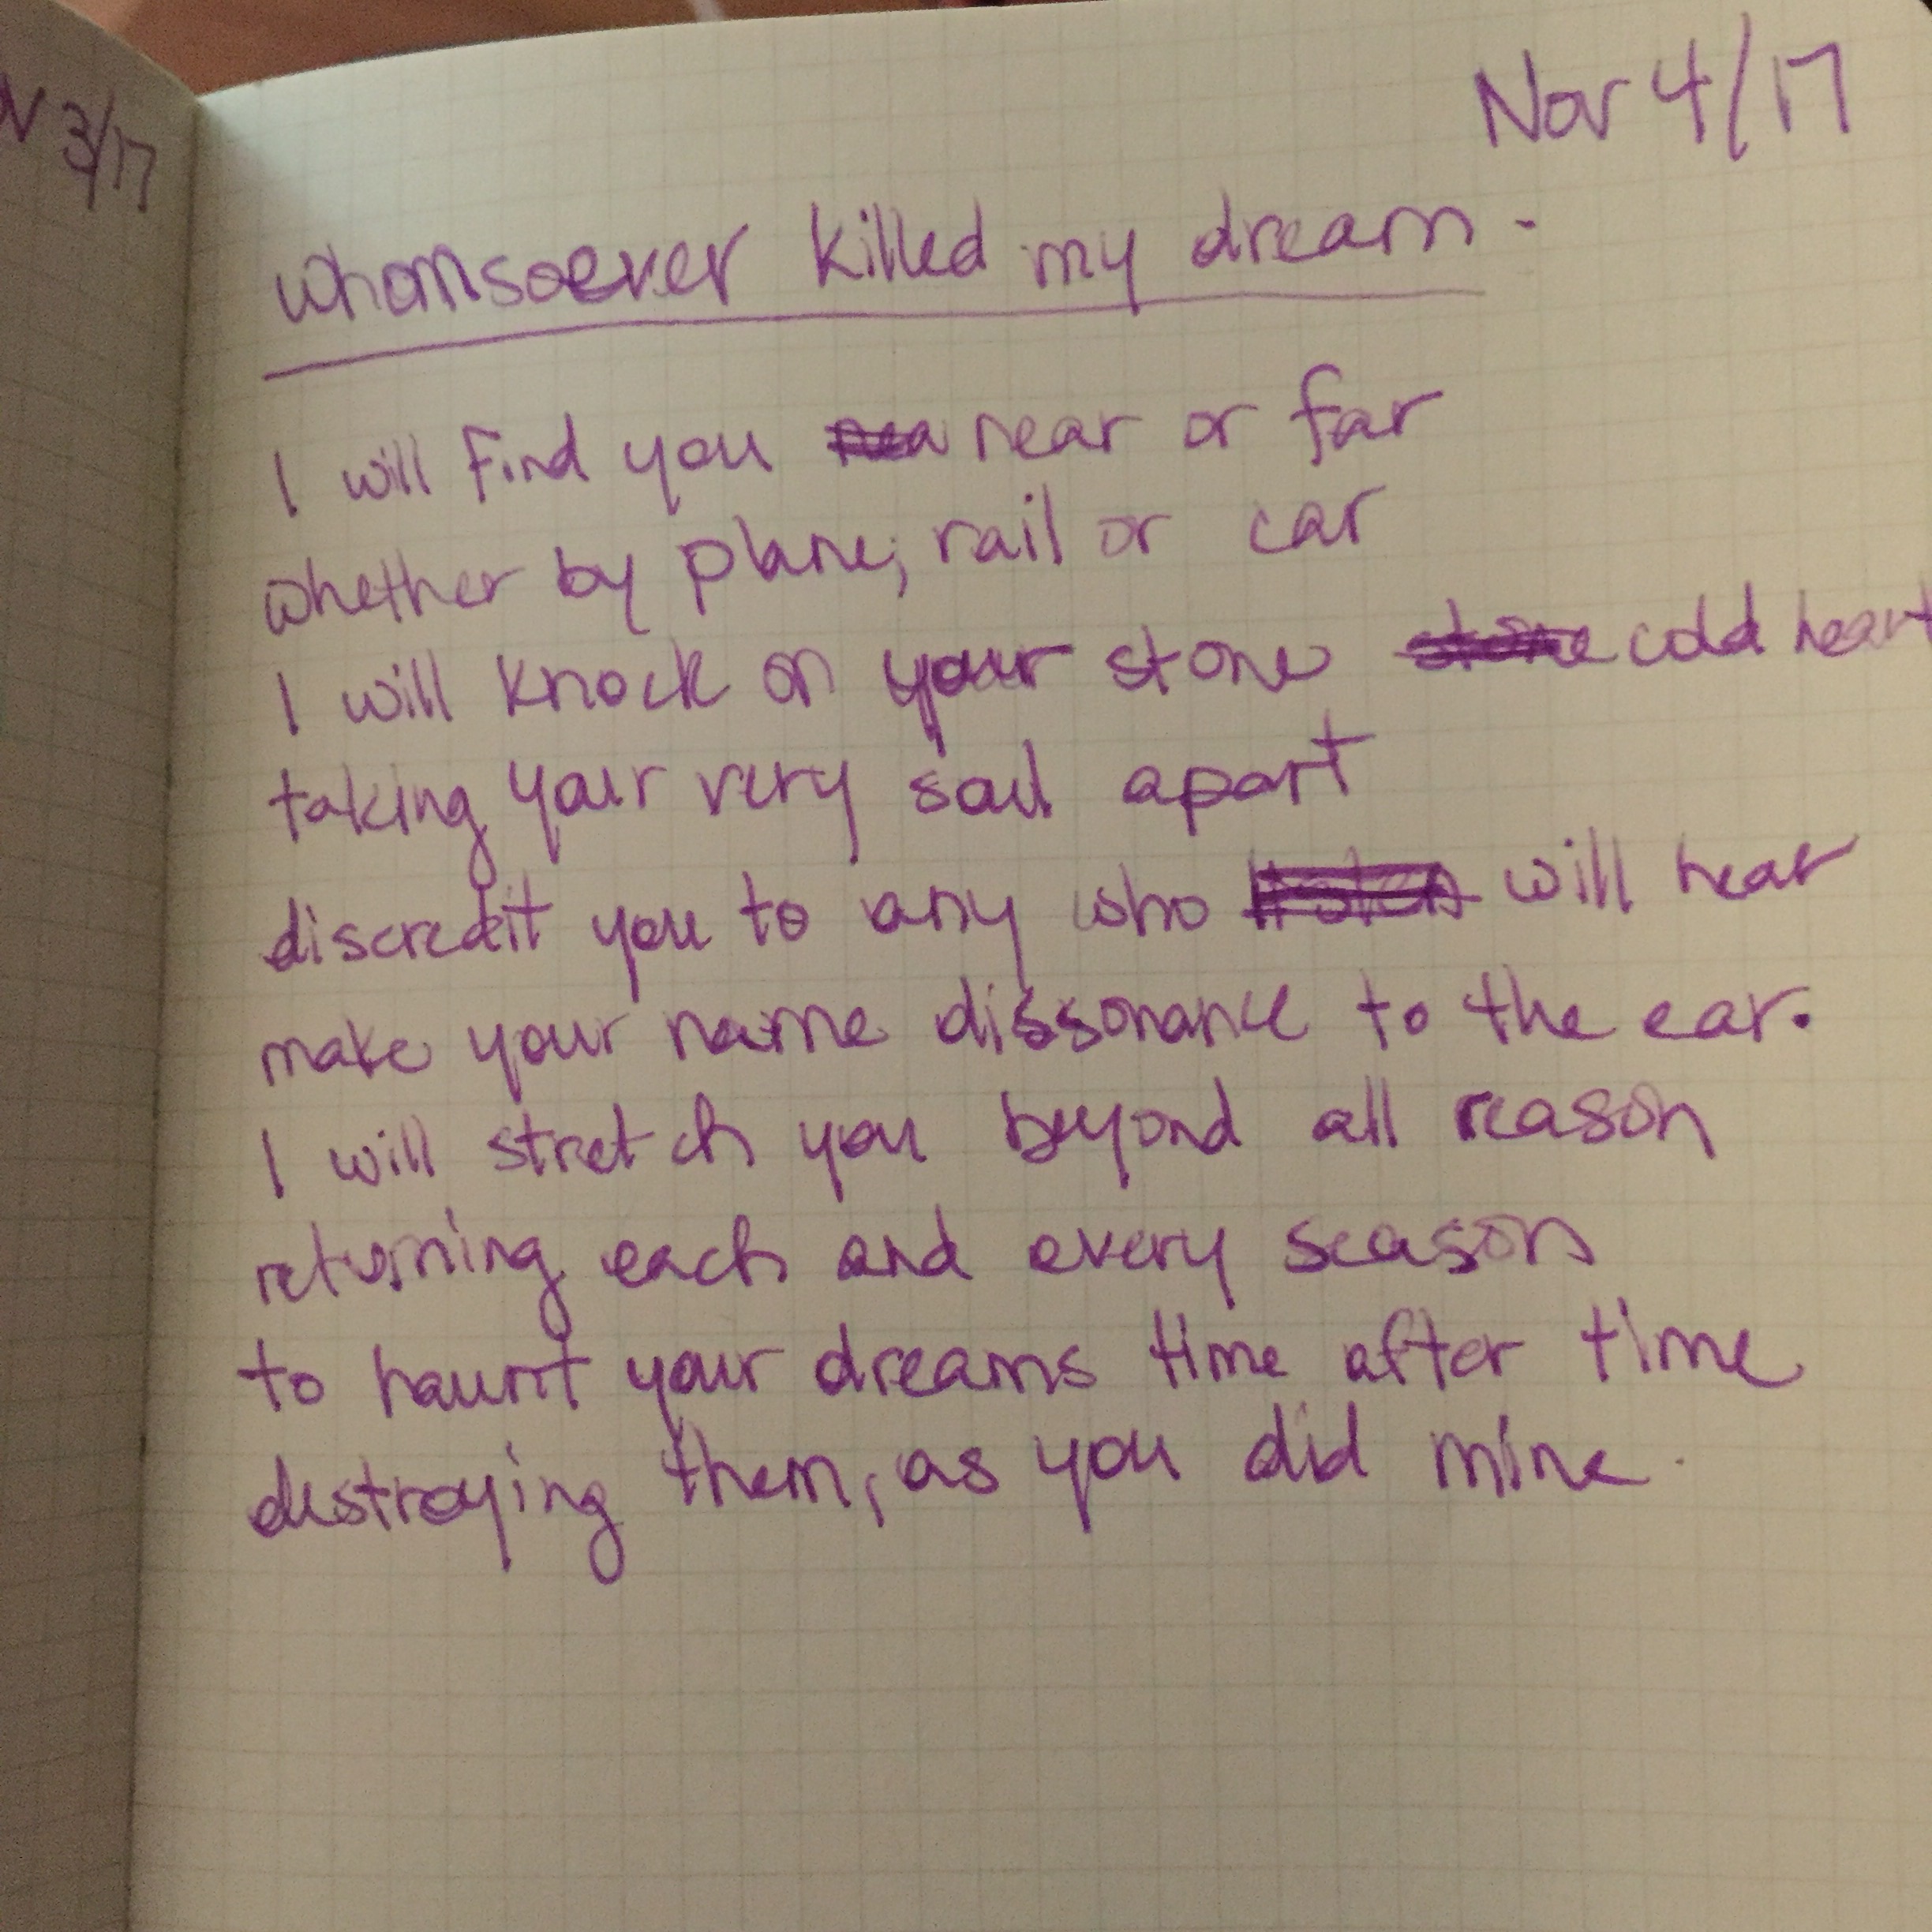 Nov 4/17
3/17
whomsoever killed my dream.
I will find you near or far
whether by plane, rail or car
I will knock on your stone cold heart
taking your very soul apart
discredit you to any who will hear
make your name dissonance to the ear.
I will stretch you beyond all reason
returning each and every season
to haunt your dreams time after time
destroying them, as you did mine.